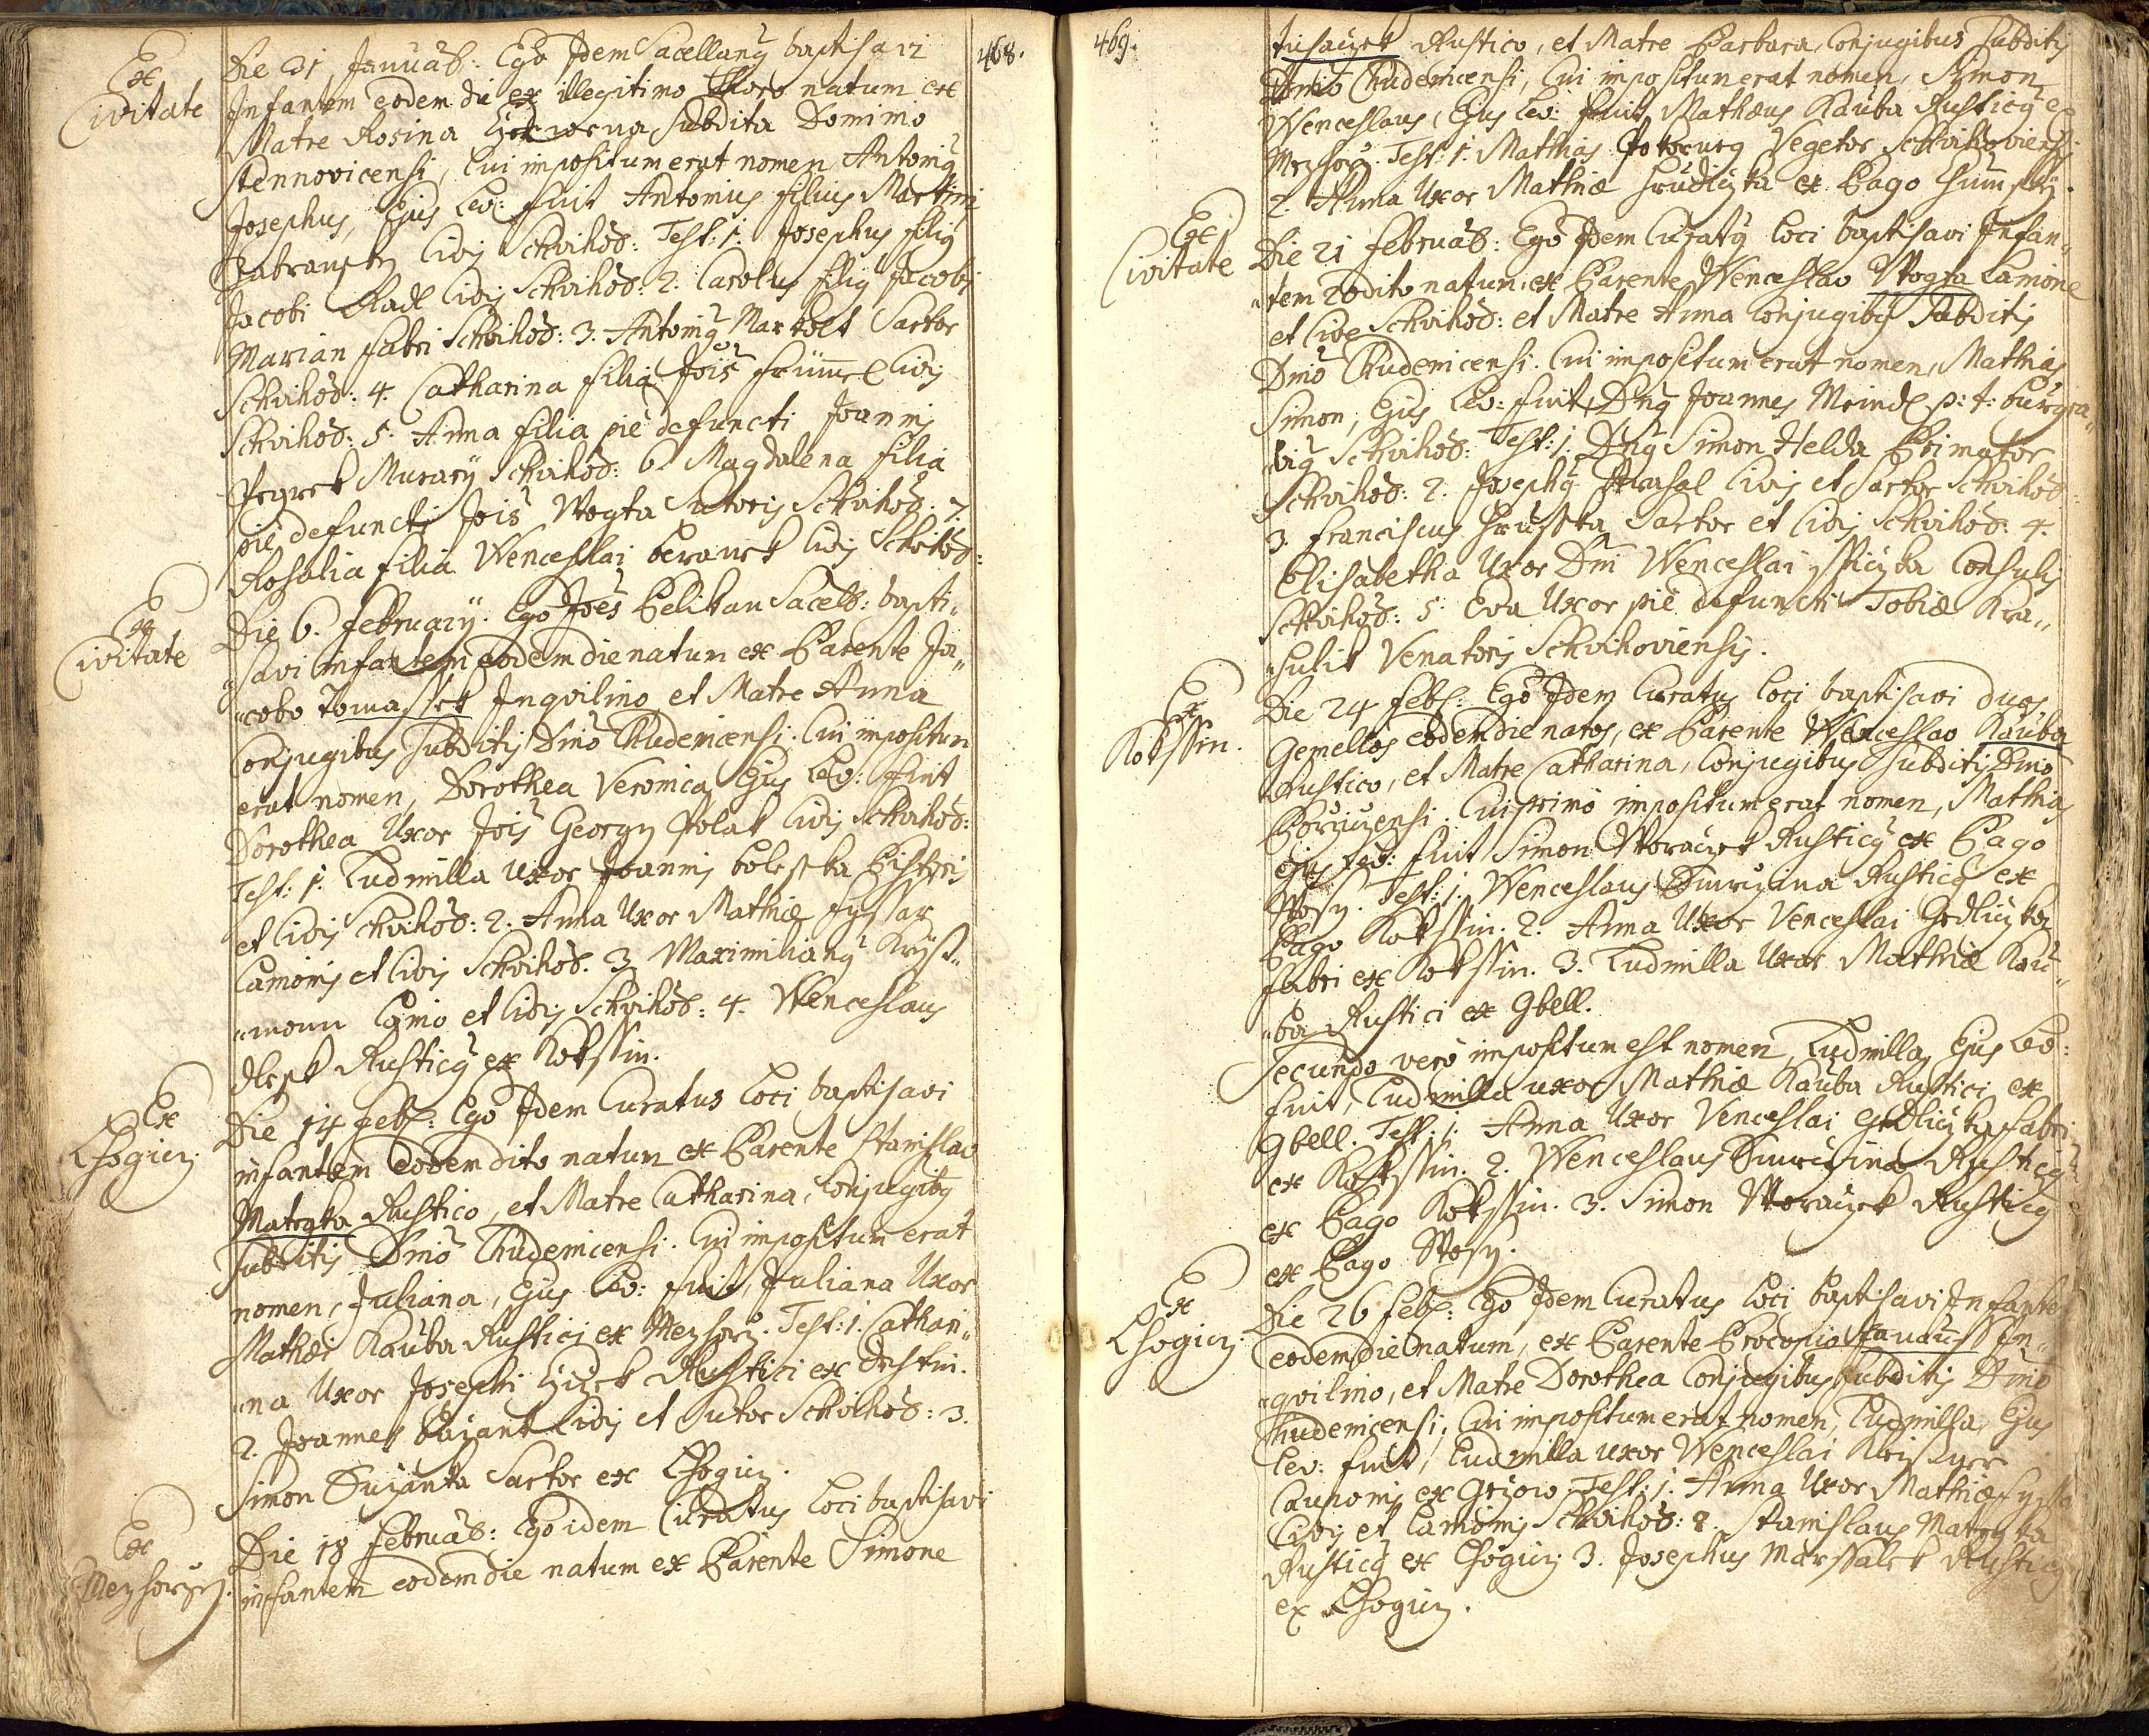 468.
Ex Civitate
Die 31 Januar: Ego Idem Sacellanq baptisavi
Infantem eodem die ex illegitimo Thoro natum ex
Matre Rosina subdita Dominio
Stennovicensi, Cui impositum erat nomen Antoniq
Josephus, Ejus Lev: fuit Antonius filius Martini
Civis Schvihov: Test: 1. Josephus filiq
Jacobi Radl Civis Schvihov: 2. Carolus filiq Jacobi
Marian fabri Schvihov: 3. Antoniq Markolt Sartor
Schvihov: 4. Catharina filia Jois Frümel Civis
Schvihov: 5. Anna filia pie defuncti Joannis
Murarij Schvihov: 6. Magdalena filia
pie defuncti Jois Wogta Sutoris Schvihov: 7.
Rosalia filia Wenceslai beranek Civis Schvihov:
Ex Civitate
Die 6. February. Ego Joes Pelikan Sacell: bapti„
„savi infantem eodem die natum ex Parente Ja„
„cobo Tomassek Inqvilino et Matre Anna
Conjugibus Subditis Dmio Chudenicensi. Cui impositum
erat nomen, Dorothea Veronica Ejus Lev: fuit
Dorothea Uxor Jois Georgy Polak Civis Schvihov:
Test: 1. Ludmilla Uxor Joannis boleska Pistoris
et Civis Schvihov: 2. Anna Uxor Mathiæ fyssar
Lanionis et Civis Schvihov. 3. Maximilianq Kryst„
„mann Lanio et Civis Schvihov: 4. Wenceslaus
Rusticq ex Kokssin.
Ex Lhogicz
Die 14 Feb: Ego Idem Curatus Loci baptisavi
infantem eodem dito natum ex Parente Stanislao
Mategka Rustico, et Matre Catharina, Conjugibq
Subditis Dmio Chudenicensi. Cui impositum erat
nomen, Juliana, Ejus Lev: fuit, Juliana Uxor
Mathæi Kauba Rustici ex Mezhorz. Test: 1. Cathari„
„na Uxor Josephi Rustici ex
2. Joannes Civis et Sutor Schvihov: 3.
Simon Sartor ex Lhogicz.
Ex Mezhorzy.
Die 18 Februar: Ego idem Curatus Loci baptisavi
infantem eodem die natum ex Parente Simone
469.
Rustico, et Matre Barbara, Conjugibus Subditis
Dmio Chudenicensi, Cui impositum erat nomen, Simon
Wenceslaus, Ejus Lev: fuit Mathæus Kauba Rusticq ex
Mezhorz. Test: 1. Matthias Vegetor Schvihoviensis
2. Anna Uxor Mathiæ Hrudiczka ex Pago
Ex Civitate
Die 21 Februar: Ego Idem Curatq Loci baptisavi Infan„
„tem eodito natum, ex Parente Wenceslao Wogta Lanione
et Cive Schvihov: et Matre Anna Conjugibq Subditis
Dmio Chudenicensi. Cui impositum erat nomen, Mathias
Simon, Ejus Lev: fuit, Dnq Joannes Meindl p: t: burgra„
„viq Schvihov: Test: 1. Dnq Simon Helda Primator
Schvihov: 2. Josephq Civis et Sartor Schvihov:
3. Franciscus Hrusska Sartor et Civis Schvihov: 4.
Elisabetha Uxor Dni Wenceslai Consulis
Schvihov: 5. Eva Uxor pie defuncti Tobiæ Kra„
„hulik Venatoris Schvihoviensis.
Ex Kokssin.
Die 24 Feb: Ego Idem Curatus Loci baptisavi duos
Gemellos eodem die natos, ex Parente Wenceslao Kauba
Rustico, et Matre Catharina, Conjugibus Subditis Dmio
Cui primo impositum erat nomen, Mathias
Ejus Lev: fuit Simon Woraczek Rusticq ex Pago
Test: 1. Wenceslaus Rusticq ex
Pago Kokssin. 2. Anna Uxor Venceslai Gedliczka
fabri ex Kokssin. 3. Ludmilla Uxor Mathiæ Kau„
„ba Rustici ex Gbell.
Secundo vero impositum est nomen, Ludmilla, Ejus Lev:
fuit, Ludmilla uxor Mathiæ Kauba Rustici ex
Gbell. Test: 1. Anna Uxor Venceslai Gedliczka fabri
ex Kokssin. 2. Wenceslaus Rusticq
ex Pago Kokssin. 3. Simon Woraczek Rusticq
ex Pago
Ex Lhogicz.
Die 26 Feb: Ego Idem Curatus Loci baptisavi Infante
eodem die natum, ex Parente Procopio Janauss In„
„qvilino, et Matre Dorothea Conjugibus Subditis Dmio
Chudenicensi; Cui impositum erat nomen, Ludmilla, Ejus
Lev: fuit, Ludmilla uxor Wenceslai
Cauponis ex Test: 1. Anna Uxor Mathiæ fyssar
Civis et Lanionis Schvihov: 2. Stanislaus Mategka
Rusticq ex Lhogicz 3. Josephus Marssalek Rusticq
ex Lhogicz.